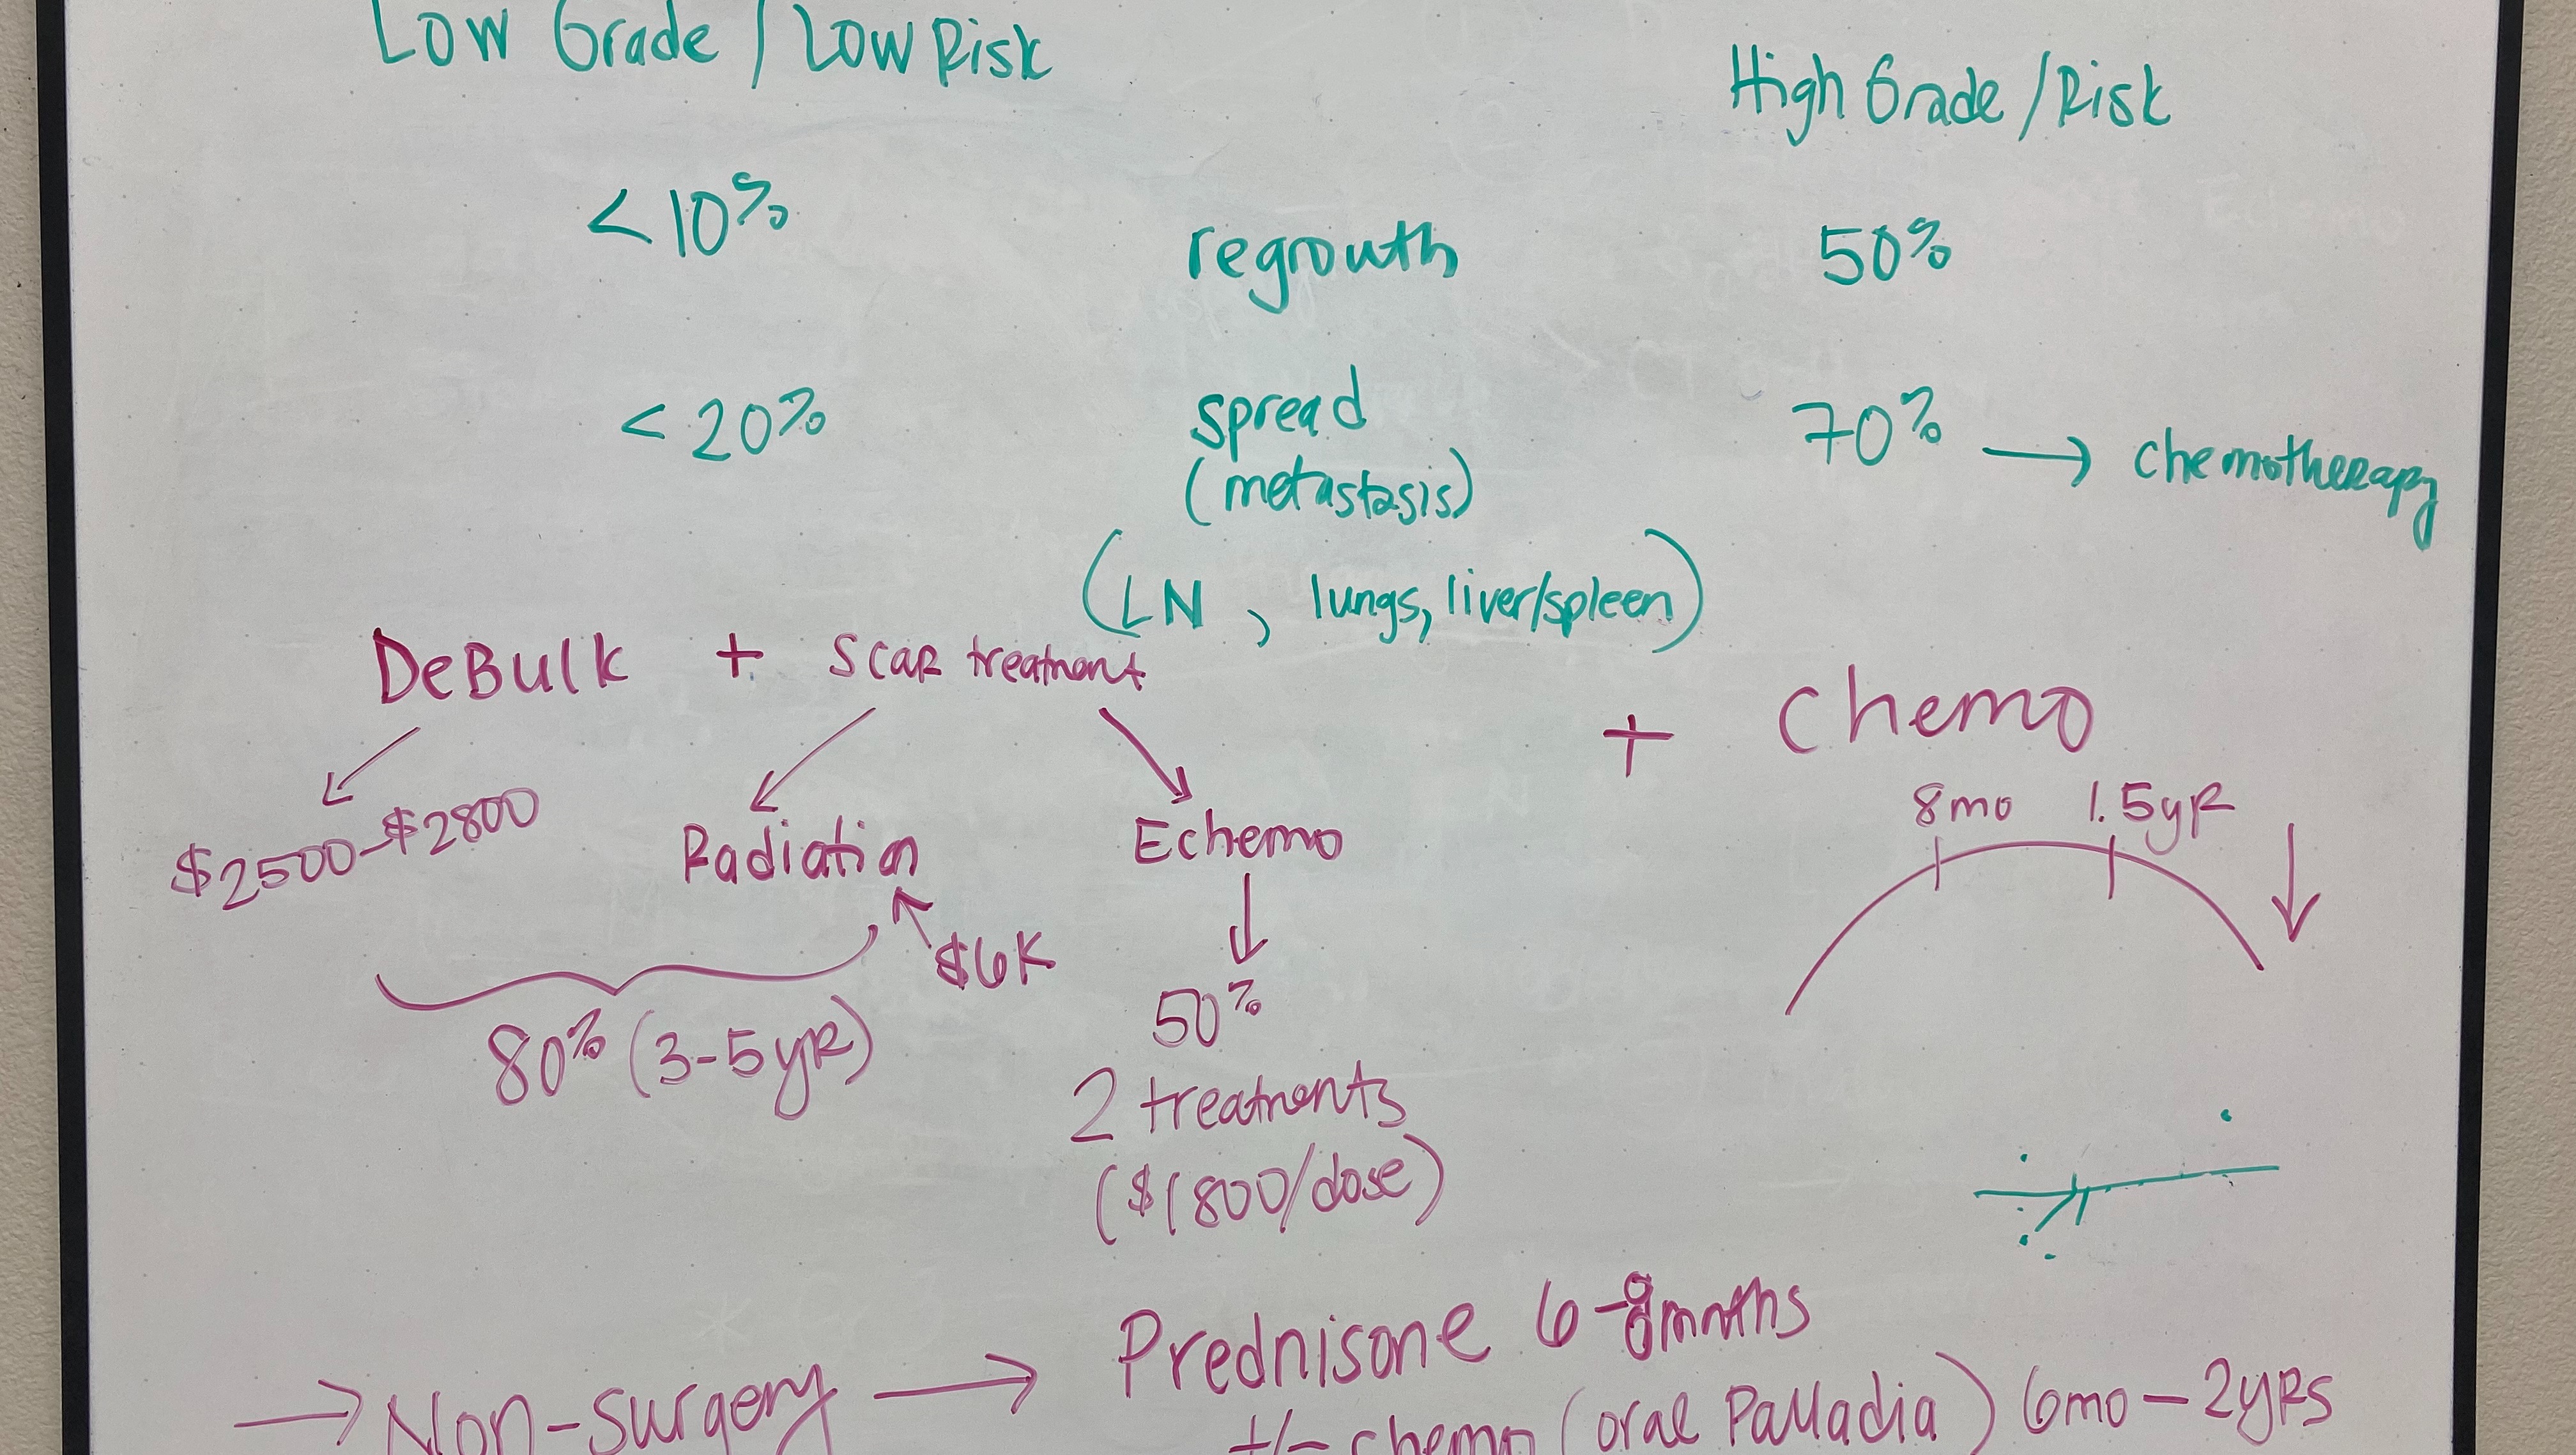 Low Grade / Low Risk
High Grade / Risk
< 10%
regrowth
50%
< 20%
spread
(metastasis)
70% → chemotherapy
(LN, lungs, liver/spleen)
DeBulk + Scar treatment
+ chemo
$2500-$2800
Radiation
Echemo
8mo
1.5yr
$6K
80% (3-5yr)
50%
2 treatments
($1800/dose)
→ Non-surgery → Prednisone 6-8months
+/- chemo (oral Palladia) 6mo - 2yrs